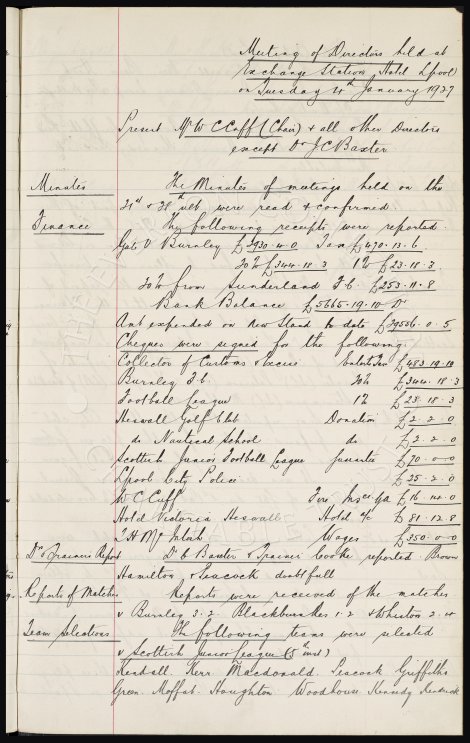 Meeting of Directors held at
Exchange Station Hotel Lpool
on Tuesday 4th January 1927
Present Mr W C Cuff (Chair) & all other Directors
except Dr J C Baxter
Minutes The Minutes of meetings held on the
21st & 28th ult were read & confirmed.
Finance The following receipts were reported.
Gate v Burnley £2930.4.0 Tax £470.13.6
20% £344.18.3 1% £23.18.3
20% from Sunderland F.C. £253.11.8
Bank Balance £5665.19.10 Dr
Amt expended on New Stand to date £29536.0.5
Cheques were signed for the following:
Collector of Customs & Excise Entert Tax £483.19.10
Burnley F.C. 20% £344.18.3
Football League 1% £23.18.3
Heswall Golf Club Donation £2.2.0
do Nautical School do £2.2.0
Scottish Junior Football League guarantee £70.0.0
Lpool City Police £25.2.0
W C Cuff Fire £16.14.0
Hotel Victoria Heswall Hotel a/c £81.12.8
Wages £350.0.0
Drs & Trainers Report Dr C Baxter & Trainer Cooke reported Brown
Hamilton & Peacock doubtfull
Reports of Matches Reports were received of the matches
v Burnley 3.2 Blackburn Res 1.2 & Whiston 2.4
Team Selections The following teams were selected
v Scottish Junior League (5th inst)
Kendall. Kerr Macdonald. Peacock Griffiths
Green. Moffat. Houghton Woodhouse Kennedy Kendrick